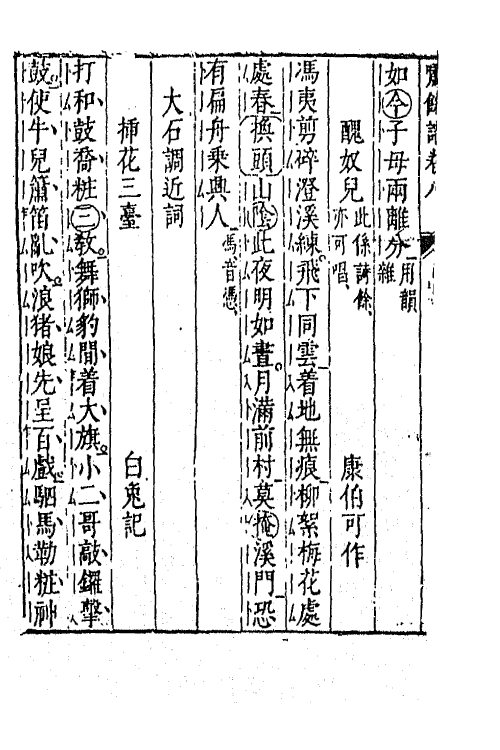 嘯餘譜卷八
如今子母兩離分用韻雜
醜奴兒此係詩餘亦可唱 康伯可作
馮夷剪碎澄溪練飛下同雲着地無痕柳絮梅花處
處春換頭山陰此夜明如晝月滿前村莫掩溪門恐
有扁舟乘興人馮音憑
大石調近詞
插花三臺 白兔記
打和鼓喬粧三教舞獅豹間着大旗小二哥敲鑼擊
鼓使牛兒簫笛亂吹浪猪娘先呈百戲駟馬勒粧神